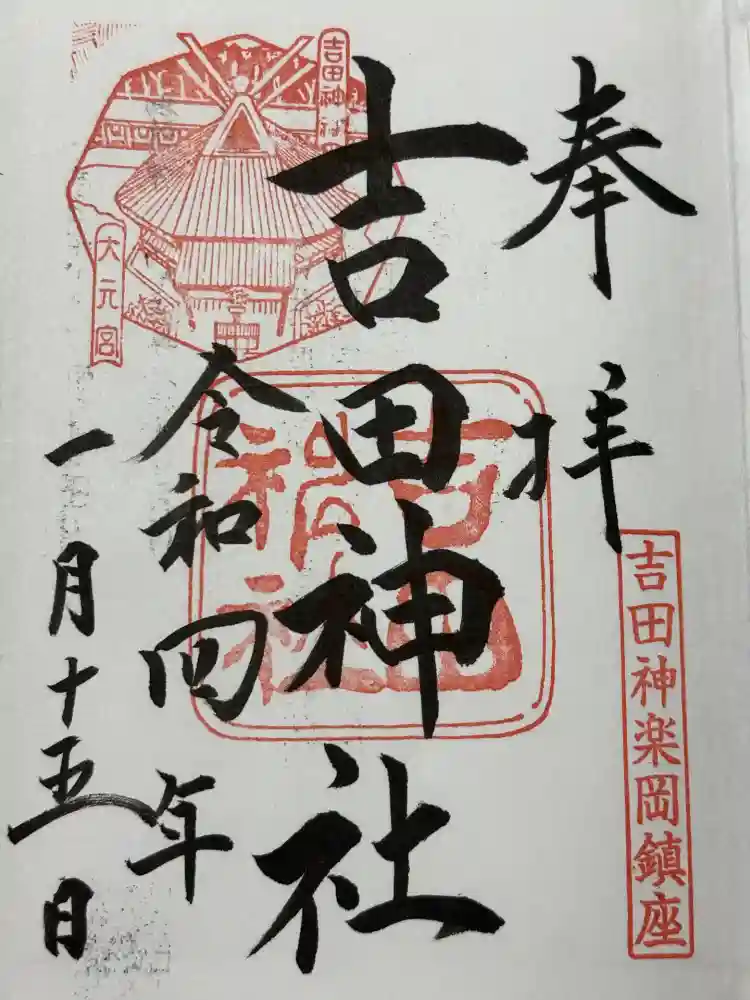 奉拝
吉田神楽岡鎮座
吉田神社
吉田神社
吉田神社
大元宮
令和四年
一月十五日